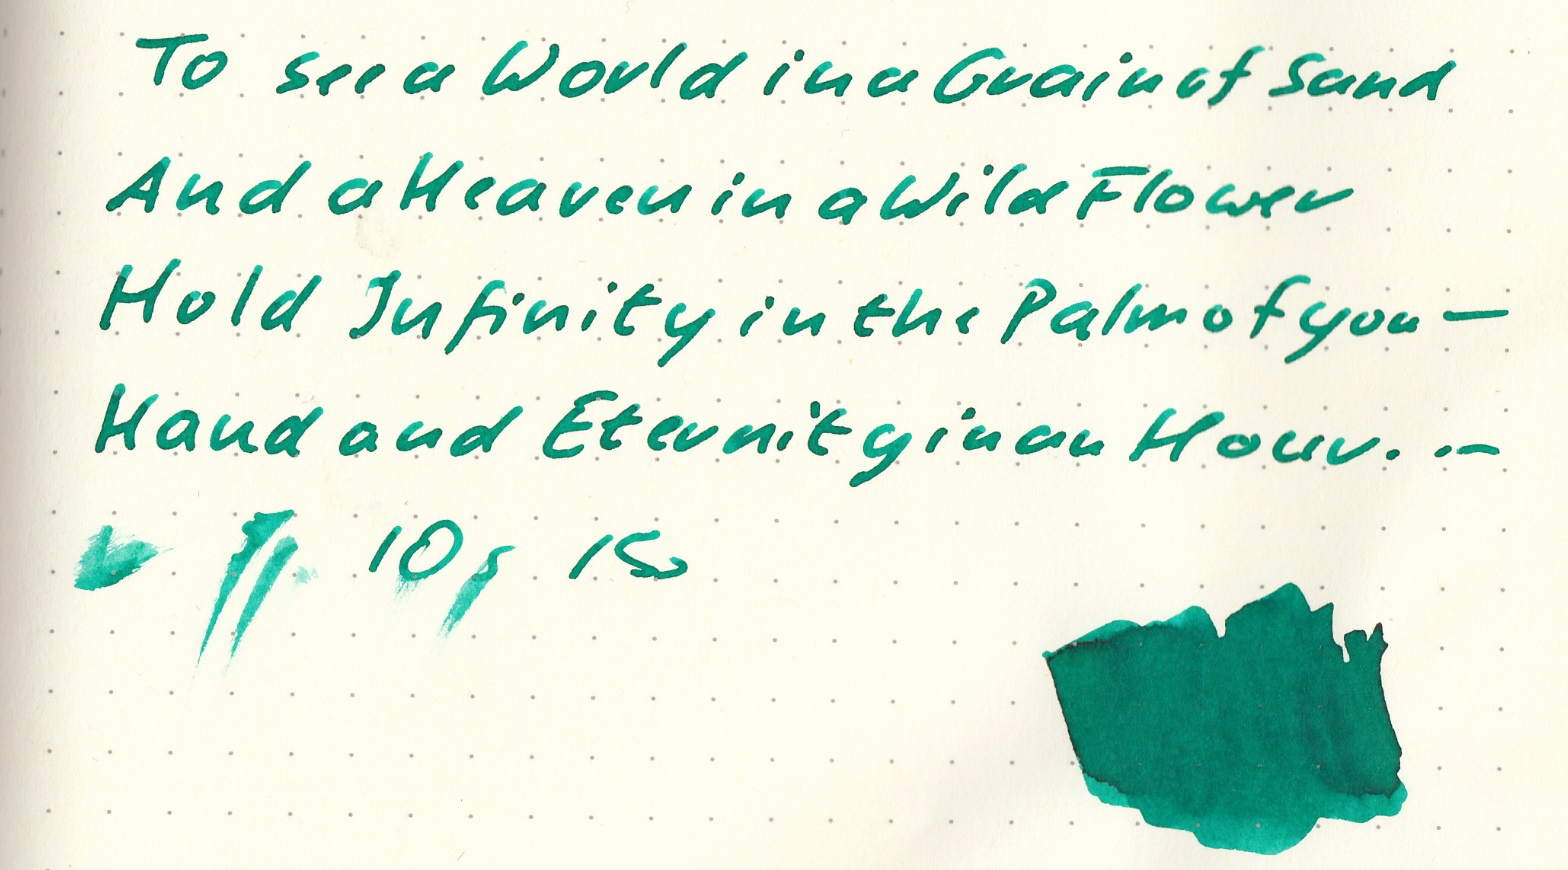 To see a World in a Grain of Sand
And a Heaven in a Wild Flower
Hold Infinity in the Palm of you —
Hand and Eternity in an Hour. .–
10s 15